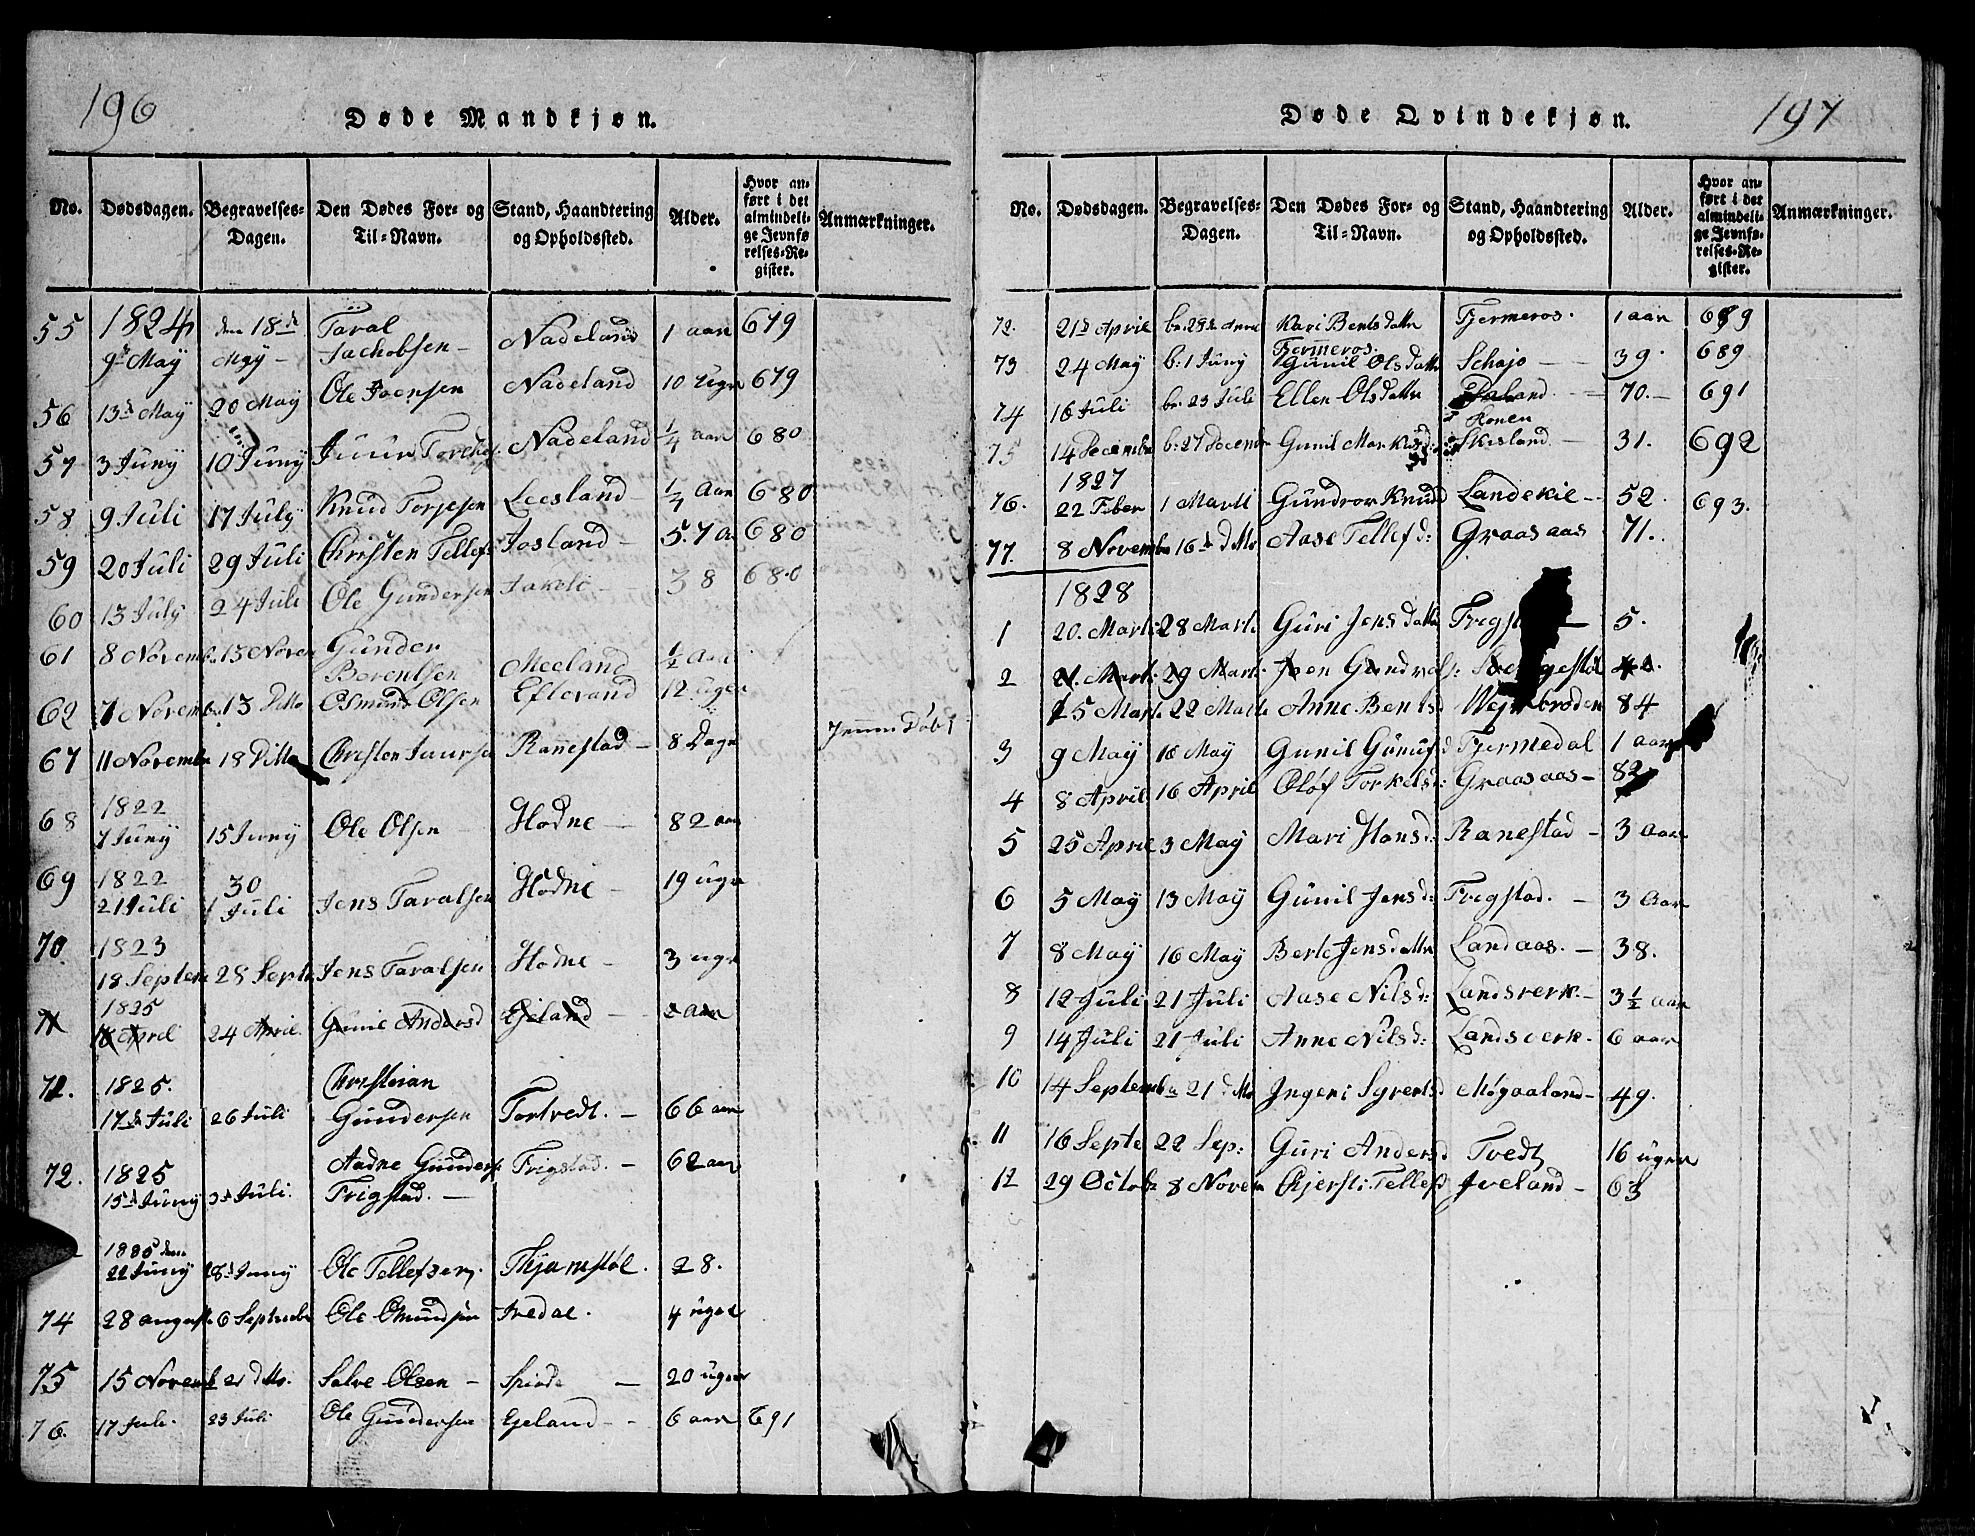 196
Døde Mandkjøn.
No. Dødsdagen. Begravelses-Dagen. Den Dødes For- og Til-Navn. Stand, Haandtering og Opholdssted. Alder. Hvor anført i det almindelige Jevnførelses-Register. Anmærkninger.
55 1824 9de May den 18de May Taral Jachobsen Nadeland 1 aar 679
56 13de May 20 May Ole Jaensen Nadeland 10 Uger 679
57 3 Juny 10 Juny Juur Nadeland 1/4 aar 680
58 9 Juli 17 July Knud Torjesen Leesland 1/4 Aar 680
59 20 Juli 29 Juli Christen Tellefs Josland 57 a 680
60 13 July 24 Juli Ole Gundersen 38 680
61 8 Novemb 15 Novem Gunder Berentsen Meeland 1/2 Aar
62 7 Novemb 13 Ditto Osmund Olsen Eftevand 12 uger
67 11 Novembr 18 Ditto Christen Juursen Rannestad 8 Dage
68 1822 7 Juny 15 Juny Ole Olsen Hodne 82 aar
69 1822 21 Juli 30 Juli Jens Taralsen Hodne 19 uger
70 1823 18 Septem 28 Septe Jens Taralsen Hodne 3 uger
71 1825 16 April 24 April Gunil Andersd Ejeland 2 aar
71. 1825. 17de Juli 26 Juli Christian Gundersen Tortvedt. 66 aar
72. 1825 15de Juny 3de Juli. Aadne Gunders Frigstad. Frigstad. 62 aar
1825 den 22 Juny 28de Juny Ole Tellefsen. 28.
74 28 august 6 Septembr Ole Omundsen Ivedal. 4 uger
75 15 Novemb 21 dito. Salve Olsen 20 uger
76. 17 Juli. 23 Juli Ole Gundersen Ejeland 6 aar 691
197
Døde Qvindekjøn.
No. Dødsdagen. Begravelses-Dagen. Den Dødes For- og Til-Navn. Stand, Haandtering og Opholdssted. Alder. Hvor anført i det almindelige Jevnførelses-Register. Anmærkninger.
72. 21de April Kari Bentsdatter Fjermeros. 1 aar 689
73 24 May b: 1 Juny Fjermeros. Gunil Olsdatter 39. 689
74 16 Juli be: 23 Juli Ellen Olsdatter 70. 691
75 14 Decembr b: 27 Decembr Gunil Skisland 31. 692
1827
76. 22 Feber 1 Marti Gundror Knudsd Landekil 52. 693.
77. 8 Novembr 16de dito Aase Tellefd: Graasaas 71.
1828
1 20. Marti 28 Marti Guri Jensdatter 5.
2 21. Marti 29 Marti. 42.
15 Marti 22 Marti Anne Bentsd 84
3 9 May 18 May Gunil Gunufsd Fjermedal 1 aar
4 8 April 16 April Oløf Torkelsd: Graasaas 82
5 25 April 3 May Mari Hansd: Ranestad 3 aar
6 5 May 13 May Gunil Jensd: Frigstad. 3 aar
7 8 May 16 May Berte Jensdatter Landaas. 38.
8 12 Juli 21 Juli Aase Nilsd: Landsverk. 3 1/2 aar
9 14 Juli 21 Juli Anne Nilsd: Landsverk. 6 aar
10 14 Septembr 21 dito Ingeri Syvertsd Møgaaland 49.
11 16 Septe 22 Sep: Guri Andersd Tvedt 16 uger
12 29 Octob 8 Novem Kjersti Tellefsd Iveland 63